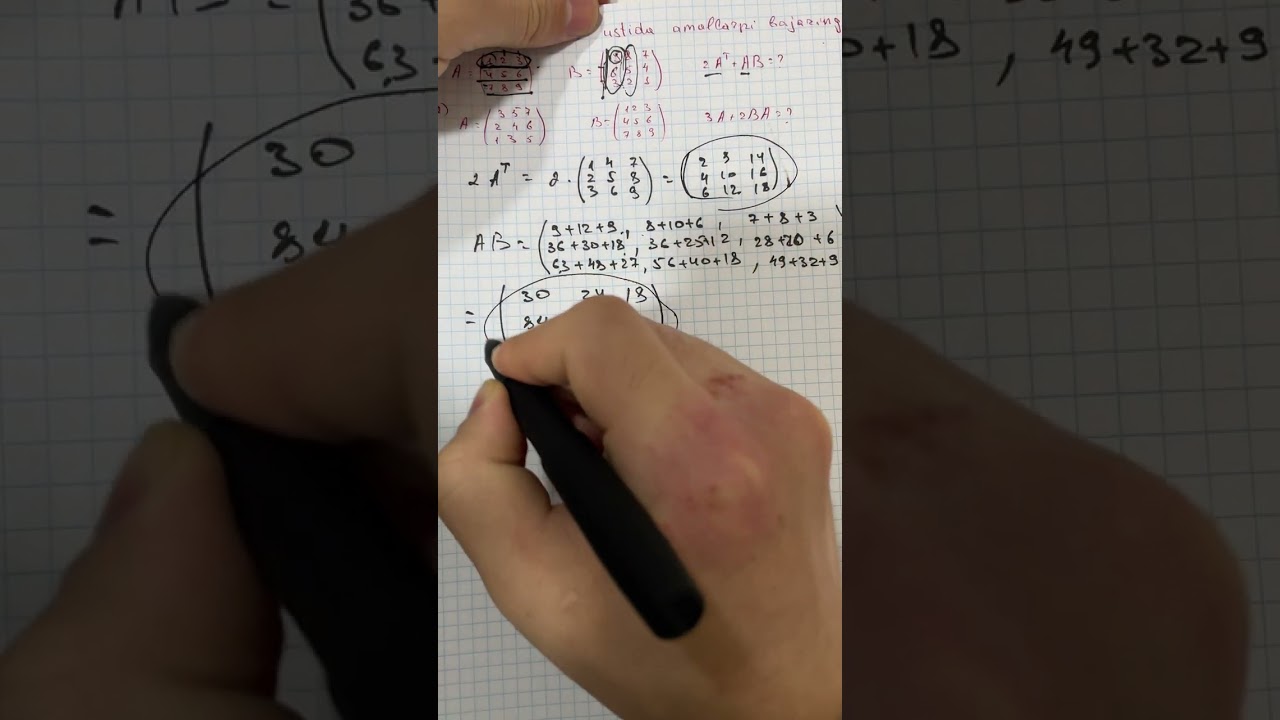 ustida amallarni bajaring
A = 4 5 6 7 8 9 B = ( 9 8 7 6 5 4 3 2 1 ) 2Aᵀ + AB = ?
A = ( 3 5 7 2 4 6 1 3 5 ) B = ( 1 2 3 4 5 6 7 8 9 ) 3A + 2BA = ?
2Aᵀ = 2 · ( 1 4 7 2 5 8 3 6 9 ) = ( 2 8 14 4 10 16 6 12 18 )
AB = ( 9+12+9 , 8+10+6 , 7+8+3
36+30+18 , 36+25+12 , 28+20+6
63+48+27 , 56+40+18 , 49+32+9
= ( 30 24 18
84